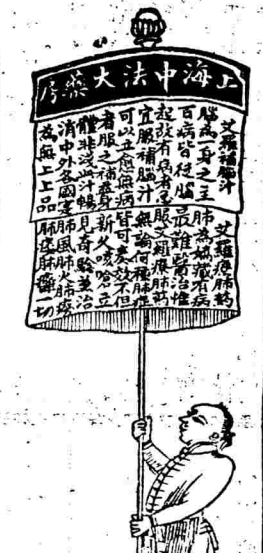 上海中法大藥房
艾羅補腦汁
腦為一身之主
百病皆從腦
起故有病者急
宜服補腦汁
可以立愈無病
者服之補益身
體非淺此汁暢
消中外各國寔
為無上上品
艾羅療肺藥
肺為嬌藏有病
最難醫治惟
服艾羅療肺藥
無論何種肺症
皆可奏效不但
新久咳嗆立
見奇驗並治
肺風肺火肺癆
肺痿肺癰一切